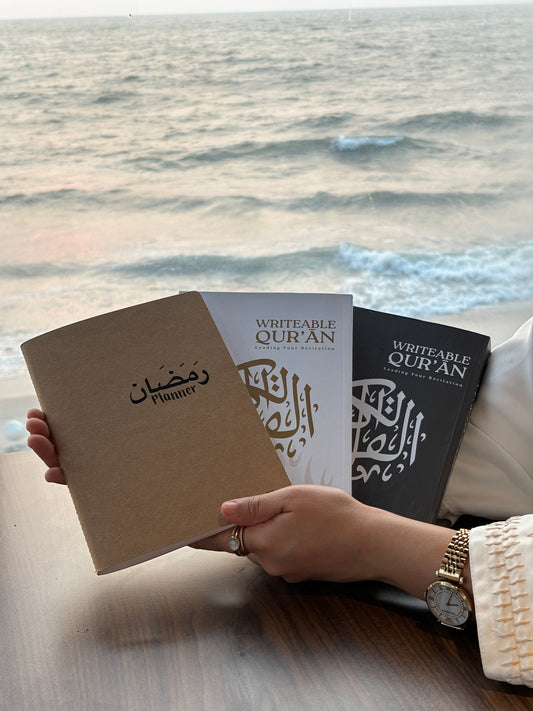 رَمَضَان
Planner
WRITEABLE
QUR'ĀN
Leading Your Recitation
WRITEABLE
QUR'ĀN
Leading Your Recitation